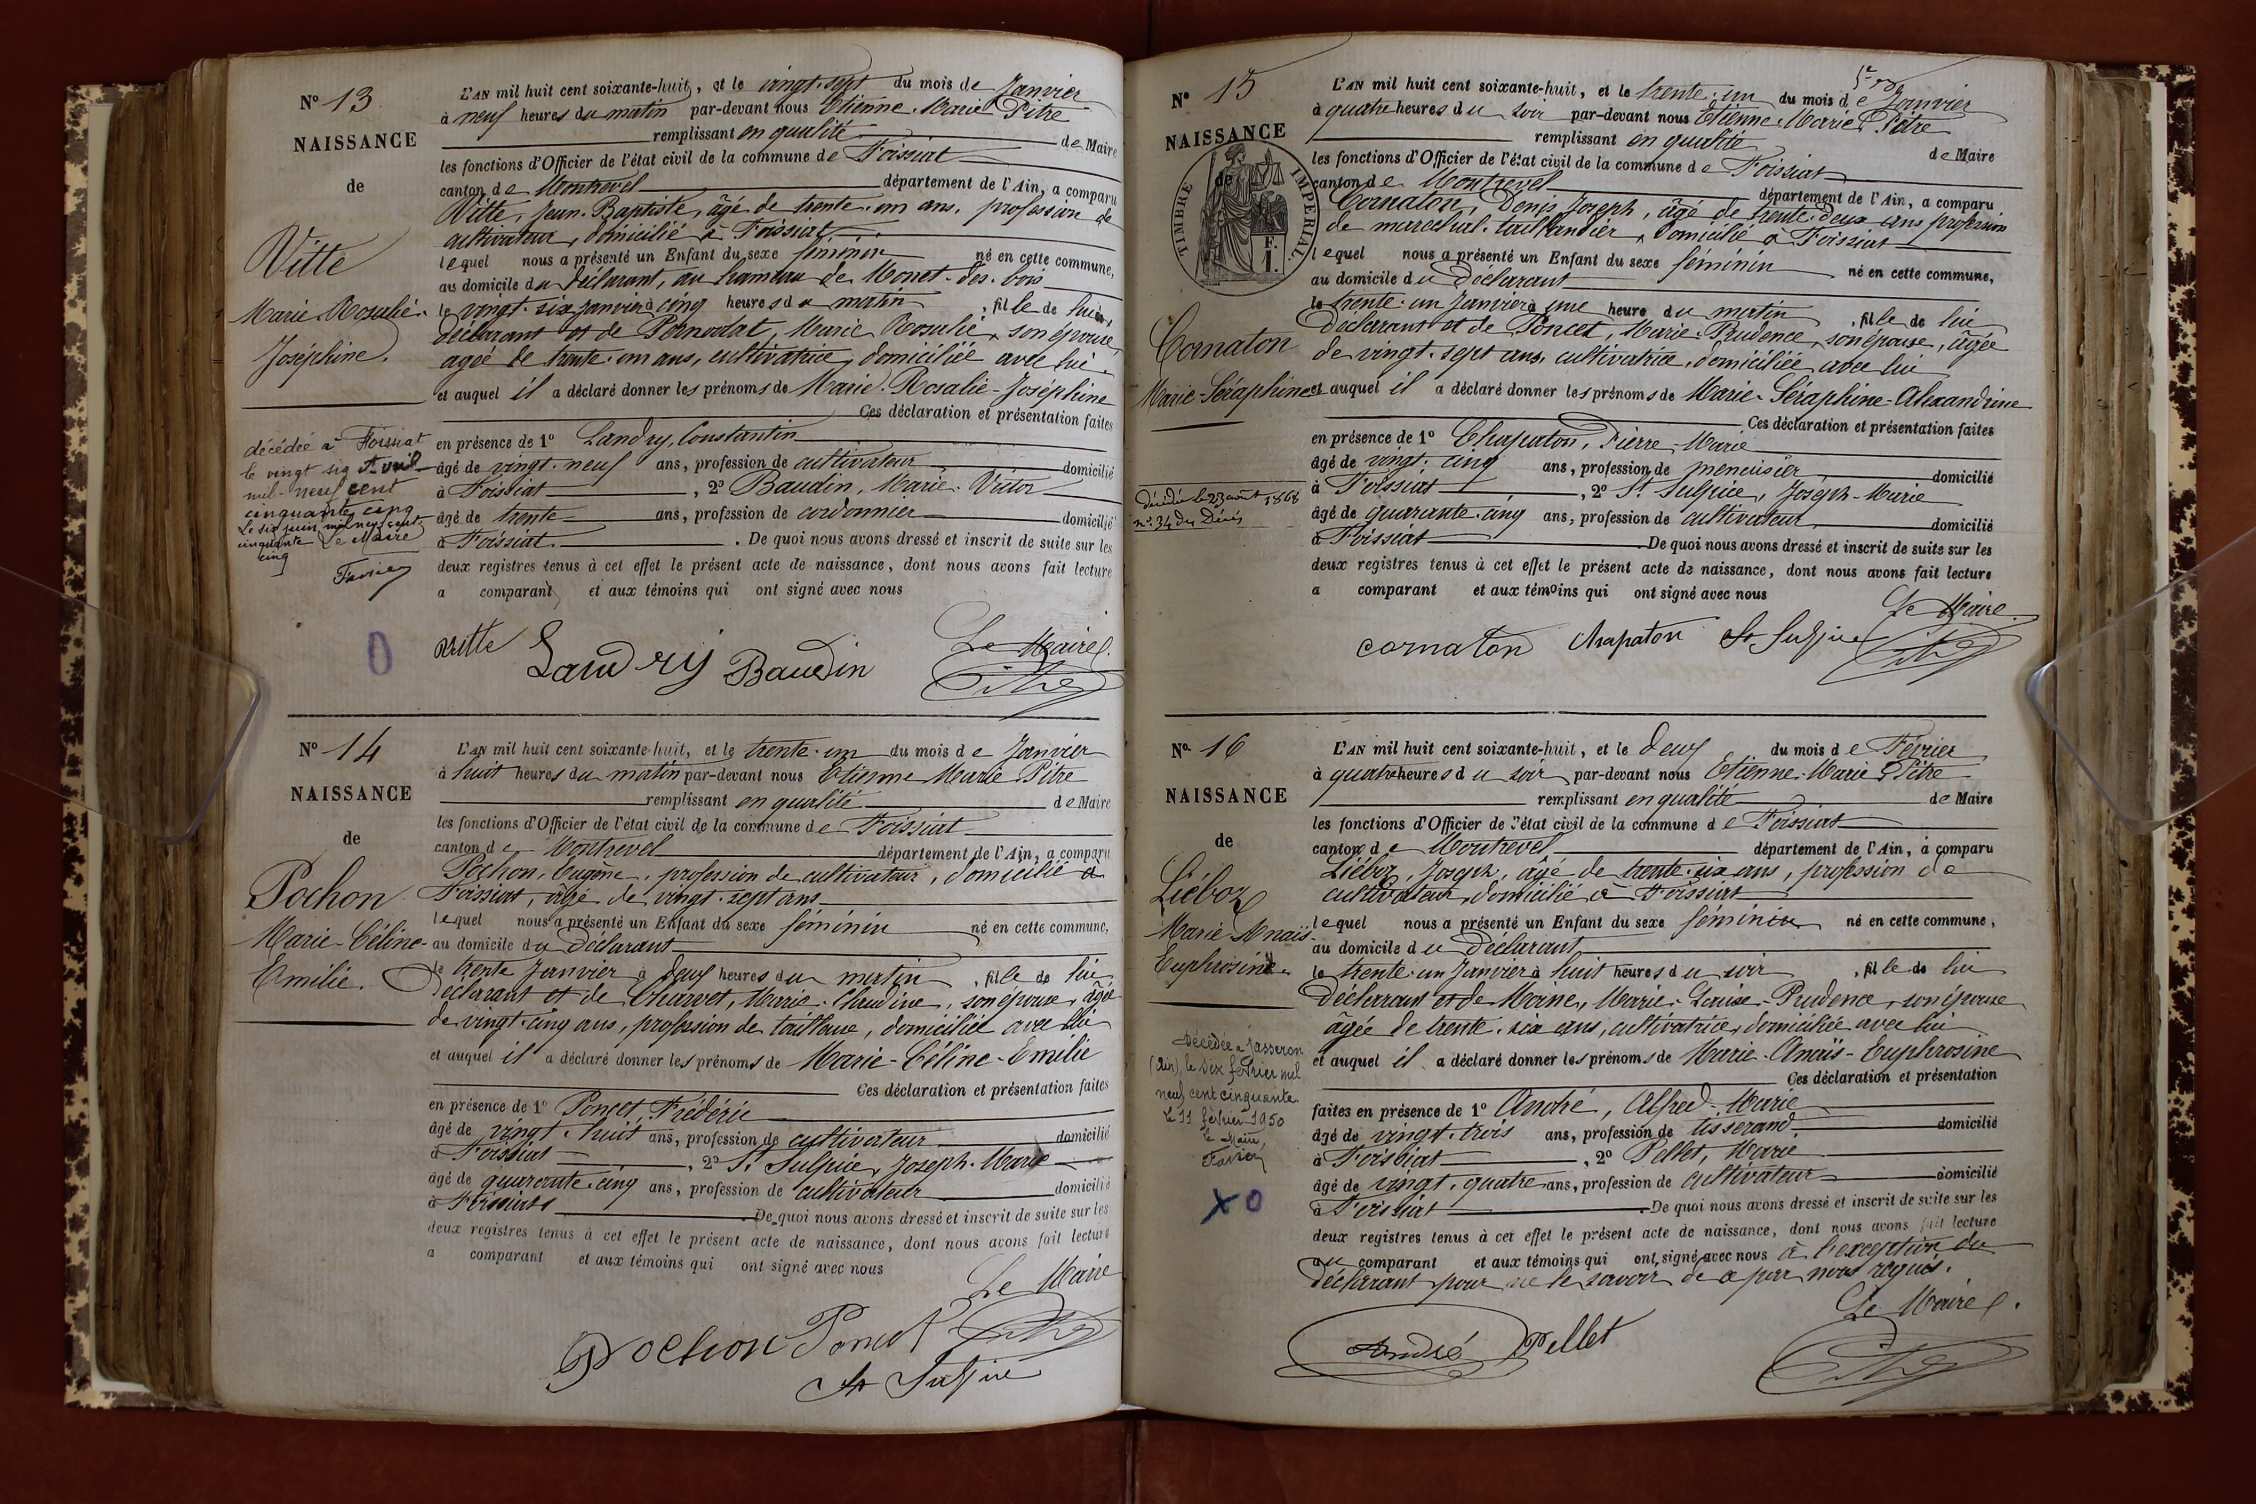 N° 13
NAISSANCE
de
Vitte
Marie Rosalie
Joséphine.
décédée à Foissiat
le vingt six Avril
mil-neuf cent
cinquante cinq
Le six juin mil neuf cent
cinquante Le Maire
cinq
L'AN mil huit cent soixante-huit, et le vingt-sept du mois de Janvier
à neuf heures du matin par-devant nous Etienne-Marie Pitre
remplissant en qualité de Maire
les fonctions d'Officier de l'état civil de la commune de Foissiat
canton de Montrevel département de l'Ain, a comparu
Vitte, Jean-Baptiste, âgé de trente-un ans, profession de
cultivateur, domicilié à Foissiat
lequel nous a présenté un Enfant du sexe féminin né en cette commune,
au domicile du déclarant, au hameau de Monet-des-bois
le vingt-six janvier à cinq heures du matin, fille de lui
déclarant et de Marie Rosalie, son épouse,
âgée de trente-un ans, cultivatrice, domiciliée avec lui.
et auquel il a déclaré donner les prénoms de Marie-Rosalie-Joséphine
Ces déclaration et présentation faites
en présence de 1° Landry, Constantin
âgé de vingt-neuf ans, profession de cultivateur domicilié
à Foissiat, 2° Baudin, Marie-Victor
âgé de trente ans, profession de cordonnier domicilié
à Foissiat. De quoi nous avons dressé et inscrit de suite sur les
deux registres tenus à cet effet le présent acte de naissance, dont nous avons fait lecture
a comparant et aux témoins qui ont signé avec nous
Le Maire.
Vitte Landry Baudin Pitre
N° 14
NAISSANCE
de
Pochon
Marie-Céline-
Emilie.
L'AN mil huit cent soixante-huit, et le trente-un du mois de Janvier
à huit heures du matin par-devant nous Etienne Marie Pitre
remplissant en qualité de Maire
les fonctions d'Officier de l'état civil de la commune de Foissiat
canton de Montrevel département de l'Ain, a comparu
Pochon, Eugène, profession de cultivateur, domicilié à
Foissiat, âgé de vingt-sept ans
lequel nous a présenté un Enfant du sexe féminin né en cette commune,
au domicile du déclarant
le trente Janvier à deux heures du matin, fille de lui
déclarant et de Charvet, Marie-Claudine, son épouse, âgée
de vingt-cinq ans, profession de tailleuse, domiciliée avec lui
et auquel il a déclaré donner les prénoms de Marie-Céline-Emilie
Ces déclaration et présentation faites
en présence de 1° Poncet, Frédéric
âgé de vingt-huit ans, profession de cultivateur domicilié
à Foissiat, 2° St Sulpice, Joseph-Marie
âgé de quarante-cinq ans, profession de cultivateur domicilié
à Foissiat. De quoi nous avons dressé et inscrit de suite sur les
deux registres tenus à cet effet le présent acte de naissance, dont nous avons fait lecture
a comparant et aux témoins qui ont signé avec nous
Le Maire
Pochon Poncet Pitre
St Sulpice
N° 15
NAISSANCE
de
TIMBRE IMPERIAL
F. I.
Cornaton
Marie-Séraphine
décédée le 23 août 1868
n° 34 des Décès
L'AN mil huit cent soixante-huit, et le trente-un du mois de Janvier
à quatre heures du soir par-devant nous Etienne-Marie Pitre
remplissant en qualité de Maire
les fonctions d'Officier de l'état civil de la commune de Foissiat
canton de Montrevel département de l'Ain, a comparu
Cornaton, Denis Joseph, âgé de trente-deux ans profession
de maréchal-taillandier, domicilié à Foissiat
lequel nous a présenté un Enfant du sexe féminin né en cette commune,
au domicile du déclarant
le trente-un Janvier à une heure du matin, fille de lui
déclarant et de Poncet, Marie-Prudence, son épouse, âgée
de vingt-sept ans, cultivatrice, domiciliée avec lui
et auquel il a déclaré donner les prénoms de Marie-Séraphine-Alexandrine
Ces déclaration et présentation faites
en présence de 1° Chapaton, Pierre-Marie
âgé de vingt-cinq ans, profession de menuisier domicilié
à Foissiat, 2° St Sulpice, Joseph-Marie
âgé de quarante-cinq ans, profession de cultivateur domicilié
à Foissiat. De quoi nous avons dressé et inscrit de suite sur les
deux registres tenus à cet effet le présent acte de naissance, dont nous avons fait lecture
a comparant et aux témoins qui ont signé avec nous
Le Maire.
cornaton Chapaton St Sulpice Pitre
N° 16
NAISSANCE
de
Liéboz
Marie-Anaïs-
Euphrosine.
Décédée à Jasseron
(Ain), le dix février mil
neuf cent cinquante.
Le 11 février 1950
le Maire,
L'AN mil huit cent soixante-huit, et le deux du mois de Février
à quatre heures du soir par-devant nous Etienne-Marie Pitre
remplissant en qualité de Maire
les fonctions d'Officier de l'état civil de la commune de Foissiat
canton de Montrevel département de l'Ain, a comparu
Liéboz, Joseph, âgé de trente-six ans, profession de
cultivateur, domicilié à Foissiat
lequel nous a présenté un Enfant du sexe féminin né en cette commune,
au domicile du déclarant
le trente-un Janvier à huit heures du soir, fille de lui
déclarant et de Moine, Marie-Louise-Prudence, son épouse
âgée de trente-six ans, cultivatrice, domiciliée avec lui
et auquel il a déclaré donner les prénoms de Marie-Anaïs-Euphrosine
Ces déclaration et présentation
faites en présence de 1° André, Alfred-Marie
âgé de vingt-trois ans, profession de tisserand domicilié
à Foissiat, 2° Pellet, Marie
âgé de vingt-quatre ans, profession de cultivateur domicilié
à Foissiat. De quoi nous avons dressé et inscrit de suite sur les
deux registres tenus à cet effet le présent acte de naissance, dont nous avons fait lecture
au comparant et aux témoins qui ont signé avec nous à l'exception du
déclarant pour ne le savoir de ce par nous requis.
Le Maire.
André Pellet Pitre